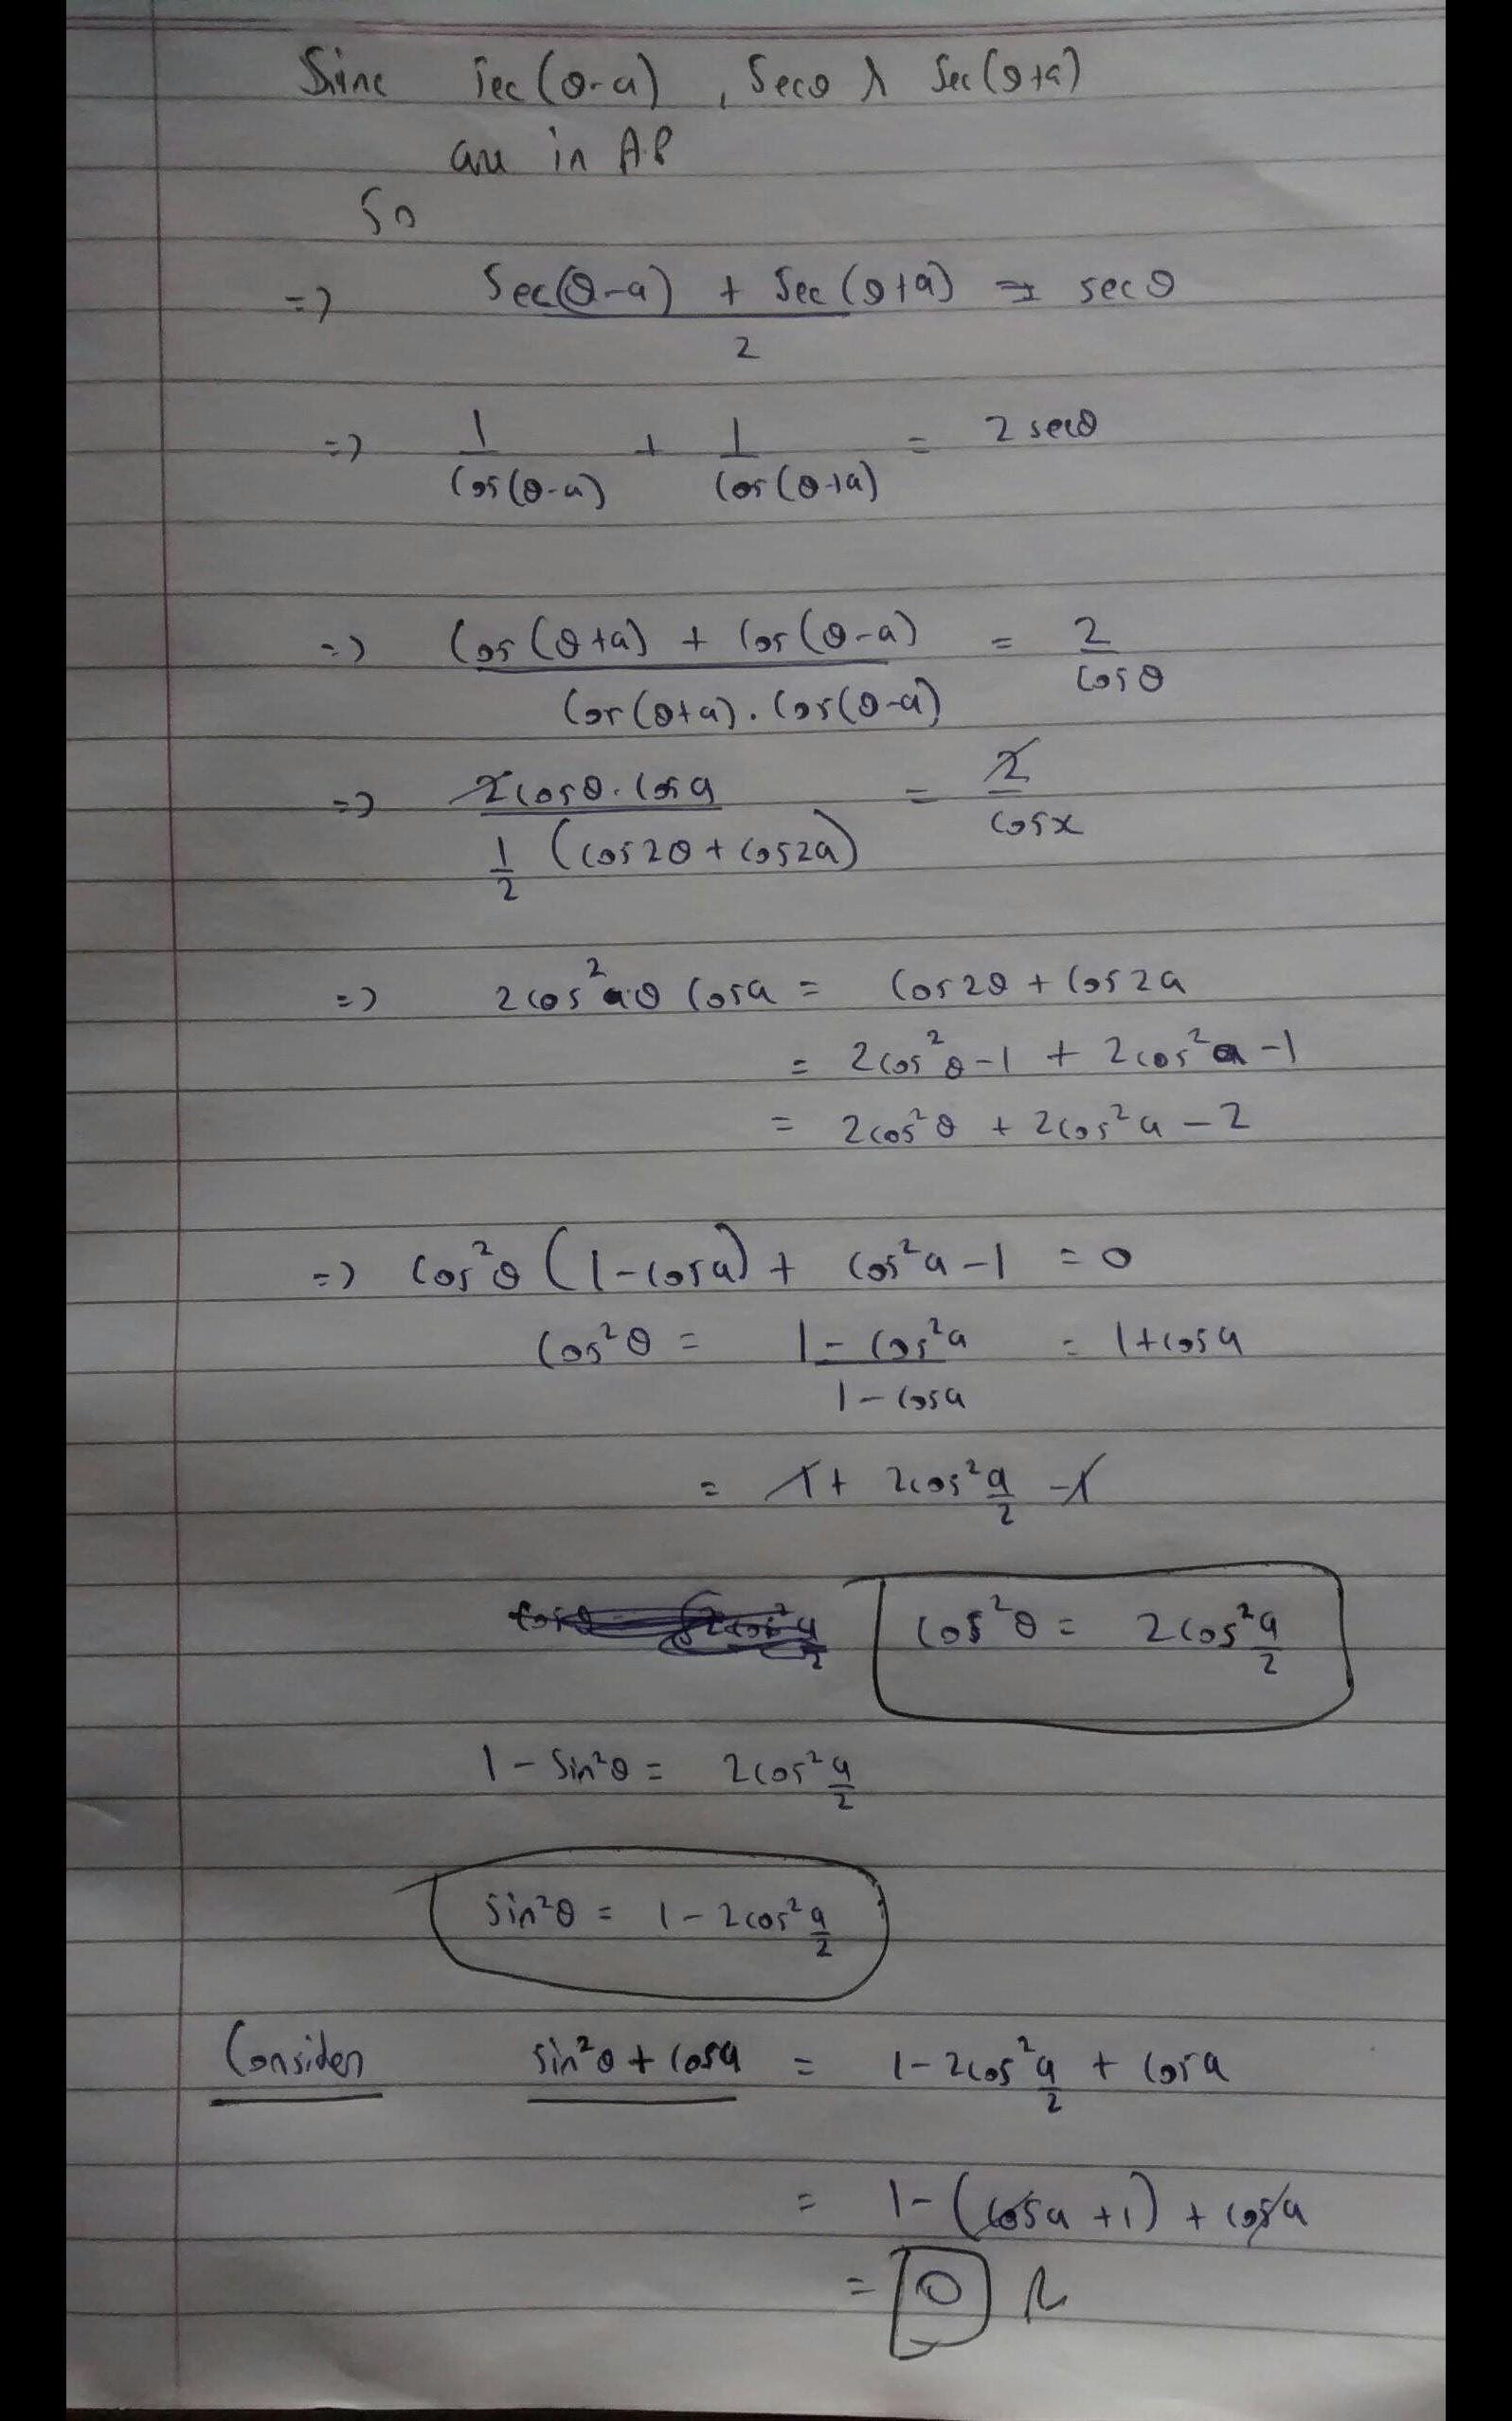 Sinc sec(θ-a) , Secθ & Sec(θ+a)
are in A.P
So
=> Sec(θ-a) + Sec(θ+a) / 2 = secθ
=> 1/cos(θ-a) + 1/cos(θ+a) = 2 secθ
=> cos(θ+a) + cos(θ-a) / cos(θ+a).cos(θ-a) = 2/cosθ
=> 2cosθ.cosa / 1/2 (cos2θ+cos2a) = 2/cosx
=> 2cos²θ cosa = cos2θ + cos2a
= 2cos²θ-1 + 2cos²a-1
= 2cos²θ + 2cos²a - 2
=> cos²θ (1-cosa) + cos²a-1 = 0
cos²θ = 1-cos²a / 1-cosa = 1+cosa
= 1+ 2cos²a/2 -1
cos²θ = 2cos²a/2
1-Sin²θ = 2cos²a/2
Sin²θ = 1-2cos²a/2
Consider sin²θ + cosa = 1-2cos²a/2 + cosa
= 1-(cosa+1) + cosa
= 0